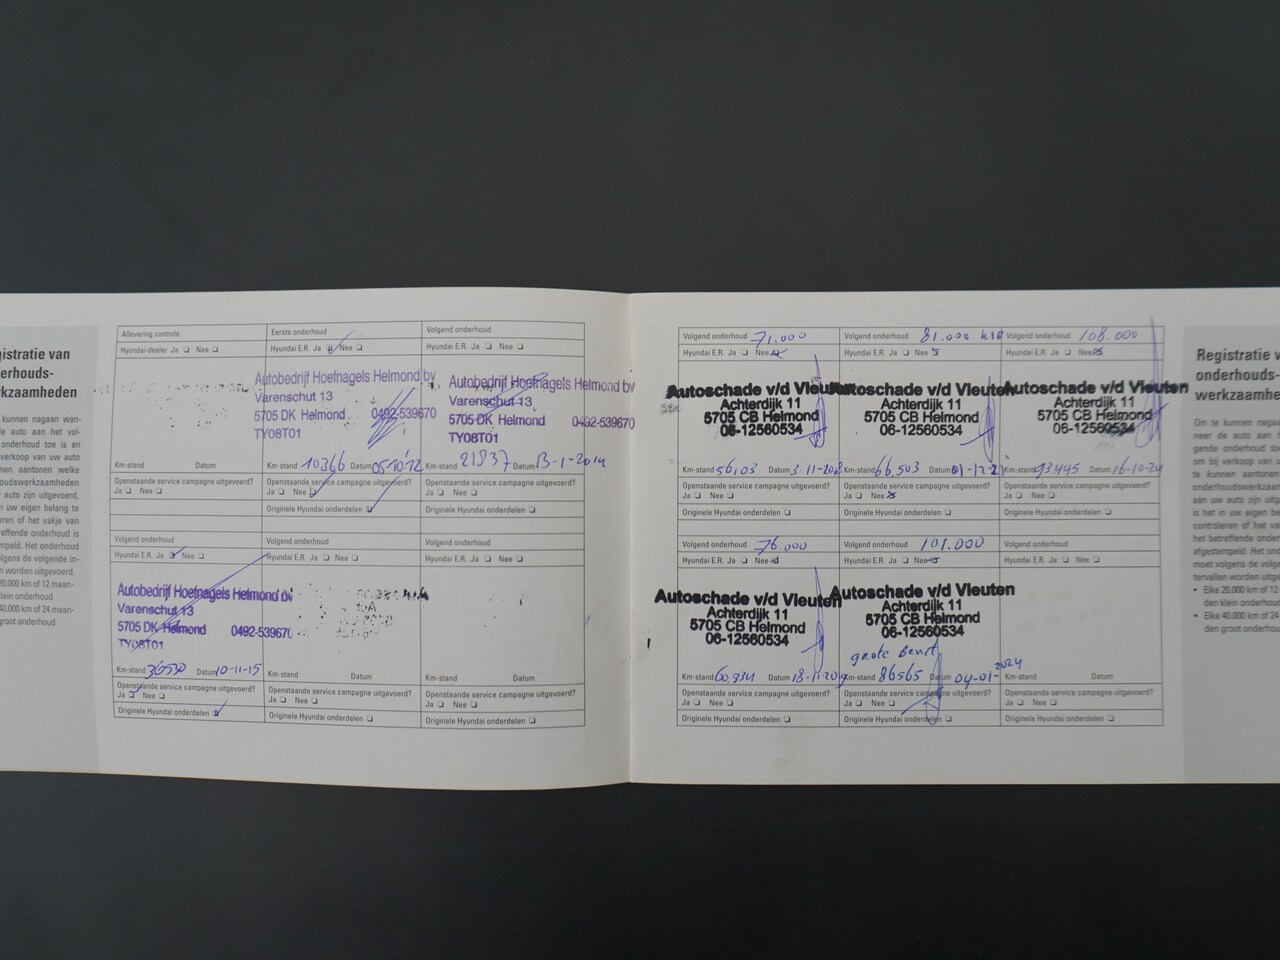 gistratie van
erhouds-
rkzaamheden
kunnen nagaan wan-
de auto aan het vol-
onderhoud toe is en
verkoop van uw auto
nen aantonen welke
houdswerkzaamheden
auto zijn uitgevoerd,
n uw eigen belang te
eren of het vakje van
reffende onderhoud is
mpeld. Het onderhoud
lgens de volgende in-
n worden uitgevoerd.
20.000 km of 12 maan-
klein onderhoud
40.000 km of 24 maan-
groot onderhoud
Aflevering controle
Hyundai-dealer Ja ❏ Nee ❏
Km-stand Datum
Openstaande service campagne uitgevoerd?
Ja ❏ Nee ❏
Eerste onderhoud
Hyundai E.R. Ja ❏ Nee ❏
Autobedrijf Hoefnagels Helmond bv
Varenschut 13
5705 DK Helmond 0492-539670
TY08T01
Km-stand 10366 Datum 05-10-'12
Openstaande service campagne uitgevoerd?
Ja ❏ Nee ❏
Originele Hyundai onderdelen ❏
Volgend onderhoud
Hyundai E.R. Ja ❏ Nee ❏
Autobedrijf Hoefnagels Helmond bv
Varenschut 13
5705 DK Helmond 0492-539670
TY08T01
Km-stand 21837 Datum 13-1-2014
Openstaande service campagne uitgevoerd?
Ja ❏ Nee ❏
Originele Hyundai onderdelen ❏
Volgend onderhoud
Hyundai E.R. Ja ❏ Nee ❏
Autobedrijf Hoefnagels Helmond bv
Varenschut 13
5705 DK Helmond 0492-539670
TY08T01
Km-stand 36530 Datum 10-11-15
Openstaande service campagne uitgevoerd?
Ja ❏ Nee ❏
Originele Hyundai onderdelen ❏
Volgend onderhoud
Hyundai E.R. Ja ❏ Nee ❏
Km-stand Datum
Openstaande service campagne uitgevoerd?
Ja ❏ Nee ❏
Originele Hyundai onderdelen ❏
Volgend onderhoud
Hyundai E.R. Ja ❏ Nee ❏
Km-stand Datum
Openstaande service campagne uitgevoerd?
Ja ❏ Nee ❏
Originele Hyundai onderdelen ❏
Volgend onderhoud 71.000
Hyundai E.R. Ja ❏ Nee
Autoschade v/d Vleuten
Achterdijk 11
5705 CB Helmond
06-12560534
Km-stand 56,03 Datum
Openstaande service campagne uitgevoerd?
Ja ❏ Nee ❏
Originele Hyundai onderdelen ❏
Volgend onderhoud 81.000
Hyundai E.R. Ja ❏ Nee
Autoschade v/d Vleuten
Achterdijk 11
5705 CB Helmond
06-12560534
Km-stand 66.503 Datum 01-12-21
Openstaande service campagne uitgevoerd?
Ja ❏ Nee
Originele Hyundai onderdelen ❏
Volgend onderhoud 108.000
Hyundai E.R. Ja ❏ Nee
Autoschade v/d Vleuten
Achterdijk 11
5705 CB Helmond
06-12560534
Km-stand 93445 Datum 16-10-24
Openstaande service campagne uitgevoerd?
Ja ❏ Nee ❏
Originele Hyundai onderdelen ❏
Volgend onderhoud 76.000
Hyundai E.R. Ja ❏ Nee
Autoschade v/d Vleuten
Achterdijk 11
5705 CB Helmond
06-12560534
Km-stand 60,934 Datum
Openstaande service campagne uitgevoerd?
Ja ❏ Nee ❏
Originele Hyundai onderdelen ❏
Volgend onderhoud 101.000
Hyundai E.R. Ja ❏ Nee
Autoschade v/d Vleuten
Achterdijk 11
5705 CB Helmond
06-12560534
grote Beurt
Km-stand 86565 Datum 04-01-2024
Openstaande service campagne uitgevoerd?
Ja ❏ Nee ❏
Originele Hyundai onderdelen ❏
Volgend onderhoud
Hyundai E.R. Ja ❏ Nee ❏
Km-stand Datum
Openstaande service campagne uitgevoerd?
Ja ❏ Nee ❏
Originele Hyundai onderdelen ❏
Registratie v
onderhouds-
werkzaamhe
Om te kunnen nagaa
neer de auto aan
gende onderhoud to
om bij verkoop van u
te kunnen aantonen
onderhoudswerkzaam
aan uw auto zijn uitg
is het in uw eigen be
controleren of het va
het betreffende onder
afgestempeld. Het ond
moet volgens de volge
tervallen worden uitge
• Elke 20.000 km of 12
den klein onderhou
• Elke 40.000 km of 24
den groot onderhou